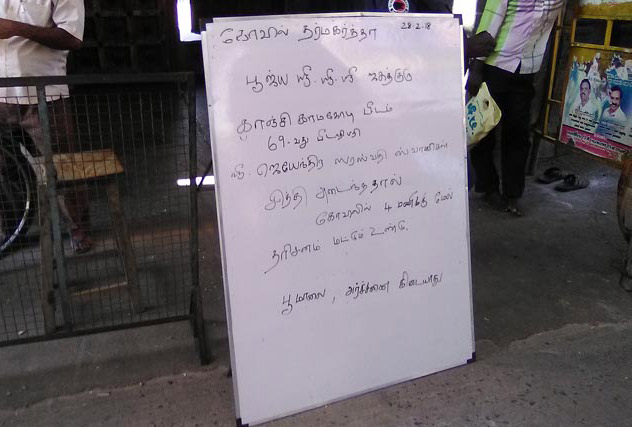 28-2-18
கோவில் தர்மகர்த்தா
பூஜ்ய ஸ்ரீ. ஸ்ரீ. ஸ்ரீ ஜகத்குரு
காஞ்சி காமகோடி பீடம்
69-வது பீடாதிபதி
ஸ்ரீ. ஜெயேந்திர ஸரஸ்வதி ஸ்வாமிகள்
சித்தி அடைந்ததால்
கோவிலில் 4 மணிக்கு மேல்
தரிசனம் மட்டும் உண்டு.
பூமாலை, அர்ச்சனை கிடையாது